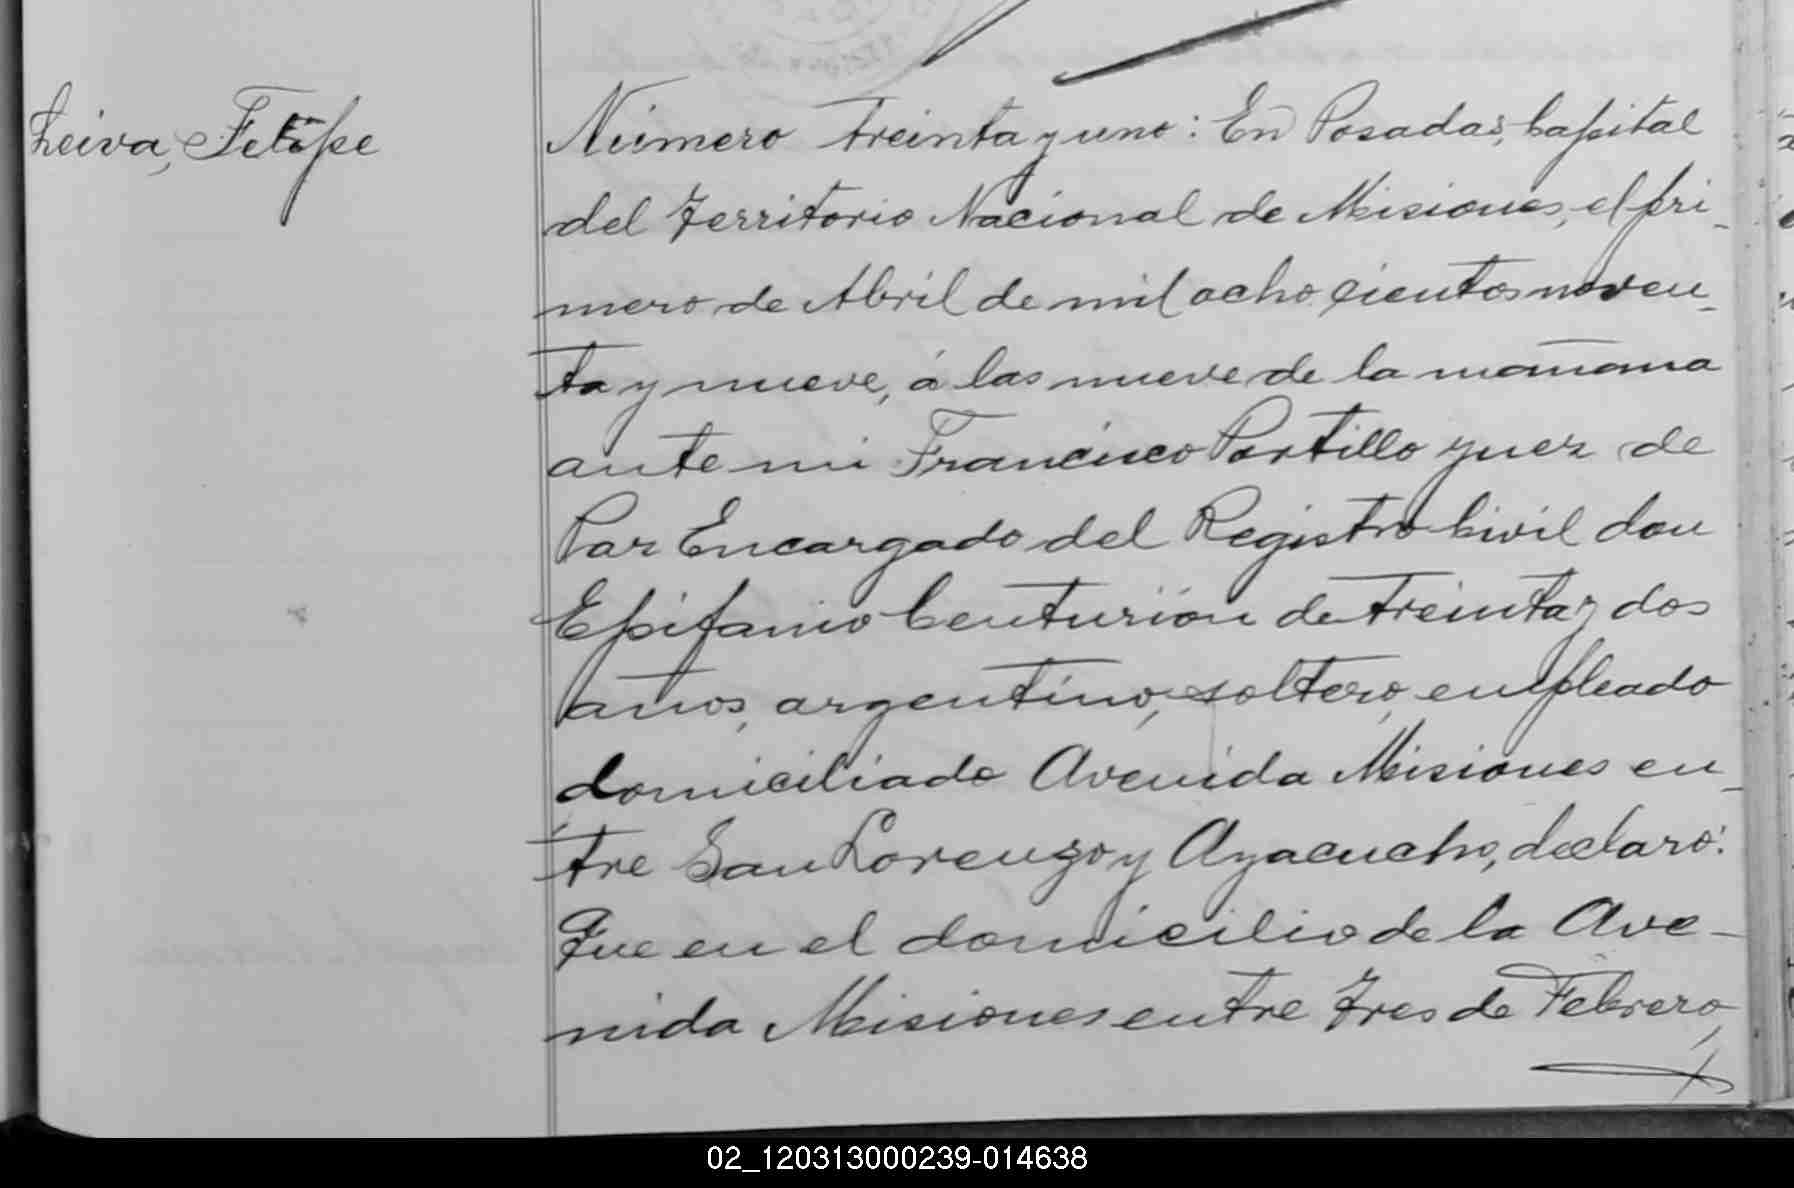 Leiva, Felipe
Número treinta y uno: En Posadas, Capital
del Territorio Nacional de Misiones, el pri-
mero de Abril de mil ocho cientos noven-
ta y nueve, á las nueve de la mañana
ante mi Francisco Portillo Juez de
Paz Encargado del Registro Civil don
Epifanio Centurión de treinta y dos
años, argentino, soltero, empleado
domiciliado Avenida Misiones en-
tre San Lorenzo y Ayacucho, declaró:
Que en el domicilio de la Ave-
nida Misiones entre Tres de Febrero,
02_120313000239-014638